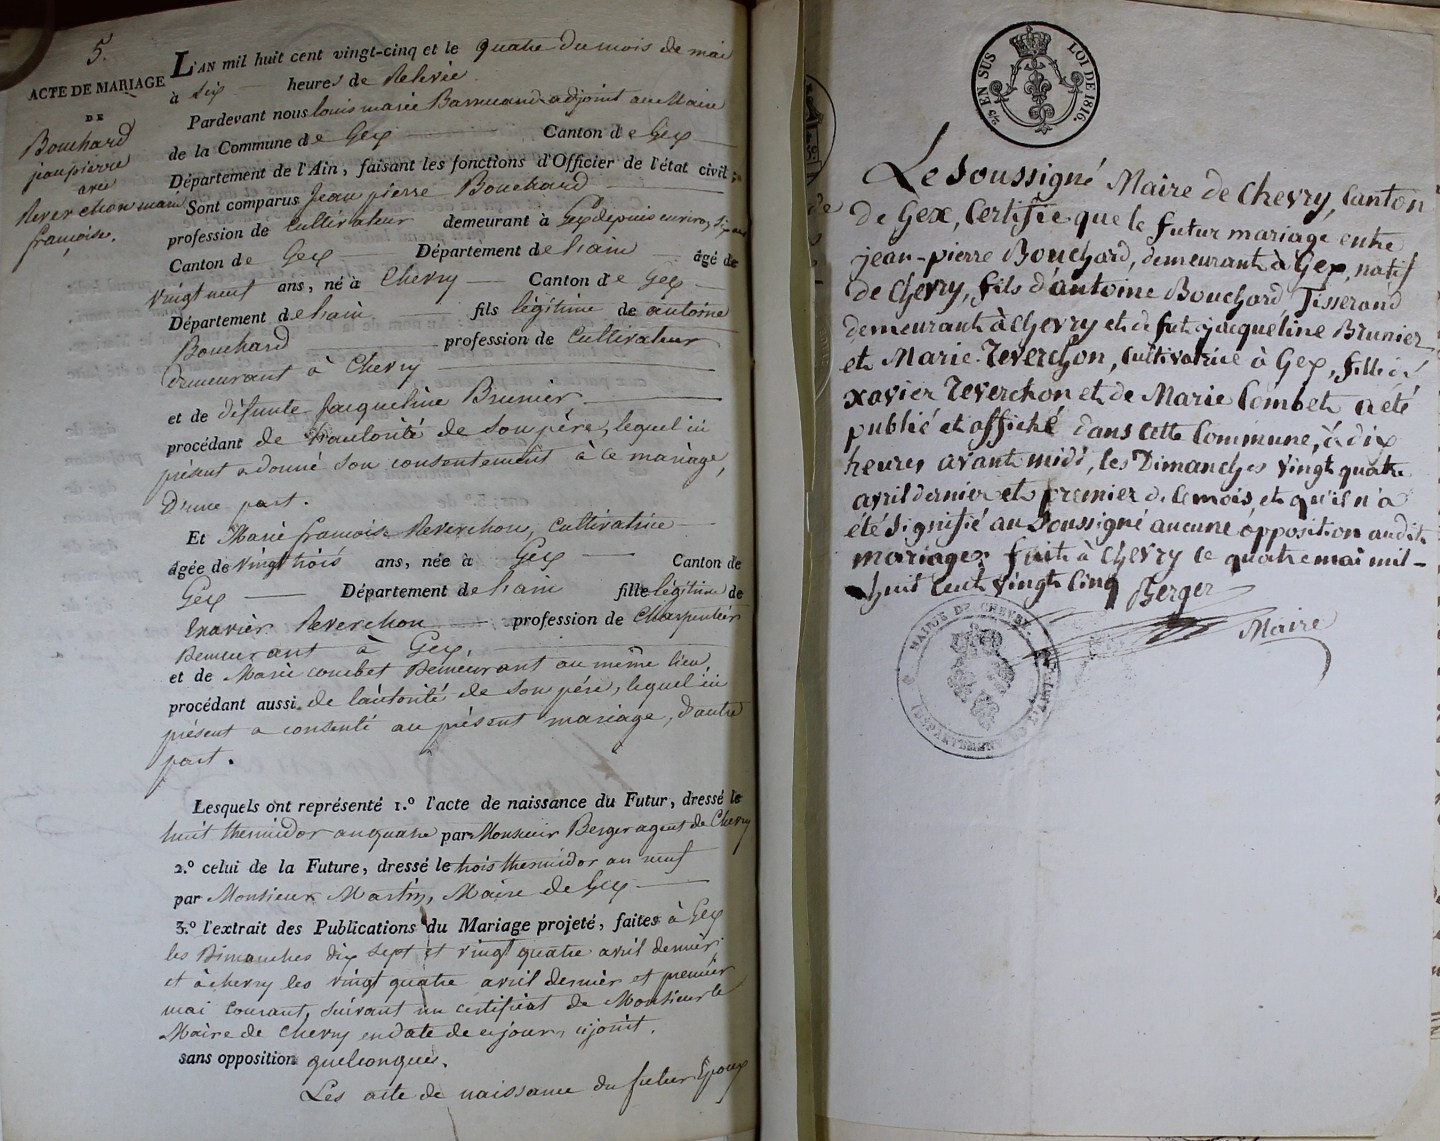 5.
ACTE DE MARIAGE
DE
Bouchard
jean pierre
avec
Reverchon marie
françoise.
L'AN mil huit cent vingt-cinq et le quatre du mois de mai
à six heures de Relevée
Pardevant nous louis marie adjoint au Maire
de la Commune de Gex Canton de Gex
Département de l'Ain, faisant les fonctions d'Officier de l'état civil;
Sont comparus Jean pierre Bouchard
profession de Cultivateur demeurant à Gex depuis environ six ans
Canton de Gex Département de l'ain âgé de
vingt neuf ans, né à Chevry Canton de Gex
Département de l'ain fils légitime de antoine
Bouchard profession de Cultivateur
demeurant à Chevry
et de défunte Jacqueline Brunier
procédant de l'autorité de son père, lequel ici
présent a donné son consentement à ce mariage,
D'une part.
Et Marie françoise Reverchon, Cultivatrice
âgée de vingt trois ans, née à Gex Canton de
Gex Département de l'ain fille légitime de
Exavier Reverchon profession de Charpentier
Demeurant à Gex,
et de Marie combet Demeurant au même lieu,
procédant aussi de l'autorité de son père, lequel ici
présent a consenti au présent mariage, d'autre
part.
Lesquels ont représenté 1.º l'acte de naissance du Futur, dressé le
huit thermidor an quatre par Monsieur Berger agent de Chevry
2.º celui de la Future, dressé le trois thermidor an neuf
par Monsieur Martin, Maire de Gex
3.º l'extrait des Publications du Mariage projeté, faites à Gex
les Dimanches dix sept et vingt quatre avril dernier
et à chevry les vingt quatre avril dernier et premier
mai courant, suivant un certificat de Monsieur le
Maire de Chevry en date de ce jour, ci joint.
sans opposition quelconques.
Les acte de naissance du futur Epoux
25 EN SUS LOI DE 1816.
Le Soussigné Maire de Chevry, Canton
de Gex, Certifie que le futur mariage entre
jean-pierre Bouchard, demeurant à Gex, natif
de Chevry, fils d'antoine Bouchard Tisserand
demeurant à Chevry et de fut jacqueline Brunier
et Marie Reverchon, Cultivatrice à Gex, fille de
xavier Reverchon et de Marie Combet a été
publié et affiché dans cette Commune, à dix
heures avant midi, les Dimanches vingt quatre
avril dernier et premier de ce mois et qu'il n'a
été signifié au Soussigné aucune opposition audit
mariage: fait à Chevry ce quatre mai mil
huit Cent vingt Cinq Berger
Maire
MAIRIE DE CHEVRY
DÉPARTEMENT